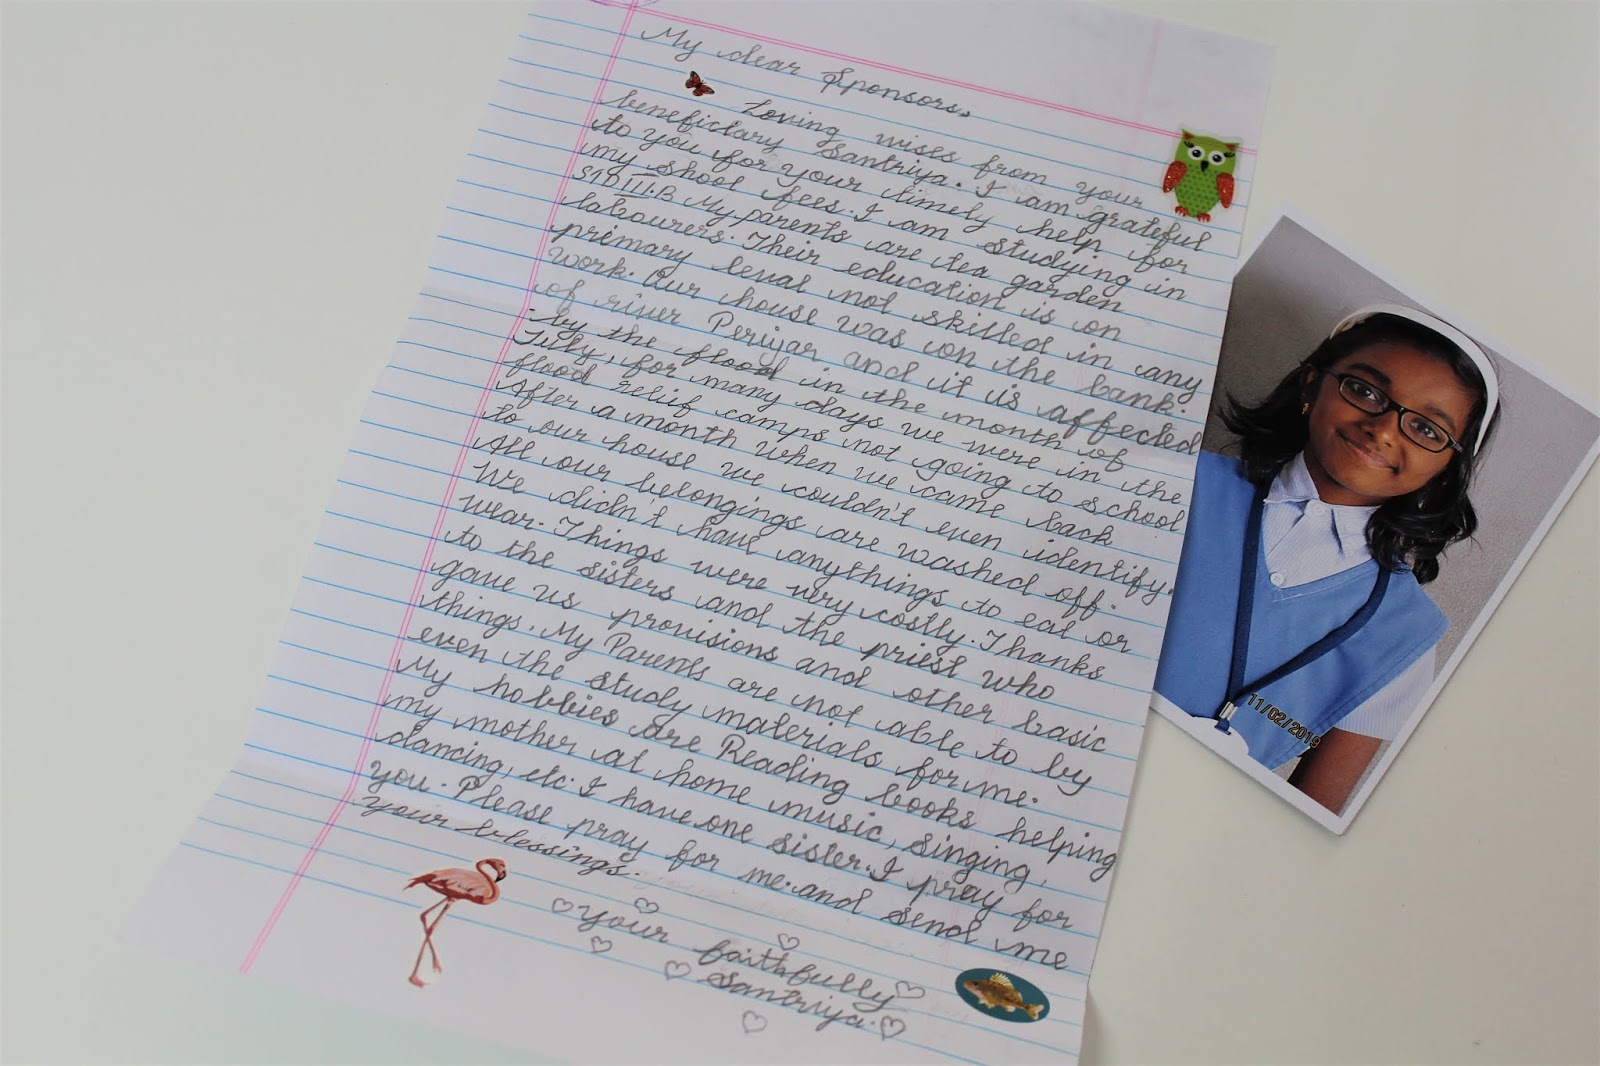 My dear Sponsors,
Loving wises from your
beneficiary Santriya. I am grateful
to you for your timely help for
my shool fees. I am studying in
STD III.B My parents are tea garden
labourers. Their education is on
primary leval not skilled in any
work. Our house was on the bank.
of river Periyar and it is affected
by the flood in the month of
Jully, for many days we were in the
flood relief camps not going to school
After a month when we came back
to our house we couldn't even identify.
All our belongings are washed off.
We didn't have anythings to eat or
wear. Things were very costly. Thanks
to the sisters and the priest who
gave us provisions and other basic
things. My Parents are not able to by
even the study materials for me.
My hobbies are Reading books helping
my mother at home music, singing,
dancing, etc. I have one sister. I pray for
you. Please pray for me. and send me
your blessings.
your faithfully
Santriya.
11/02/2019